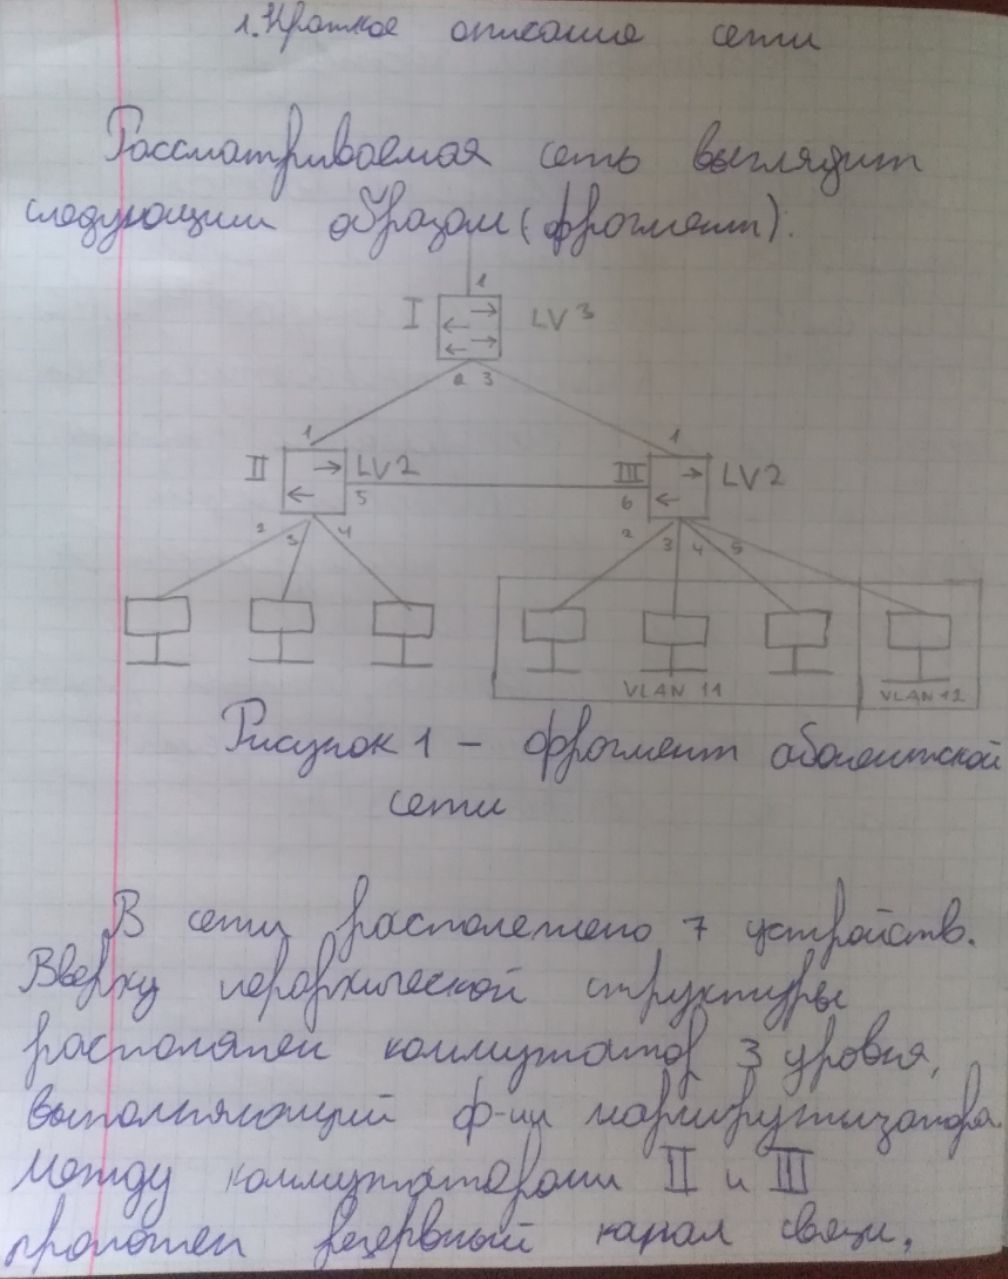 1. Краткое описание сети
Рассматриваемая сеть выглядит
следующим образом (фрагмент):
1
I LV3
2 3
1 1
II LV2 III LV2
5 6
2 3 4 2 3 4 5
VLAN 11 VLAN 12
Рисунок 1 – фрагмент абонентской
сети
В сети расположено 7 устройств.
Вверху иерархической структуры
расположен коммутатор 3 уровня,
выполняющий ф-ии маршрутизатора.
Между коммутаторами II и III
проложен резервный канал связи,